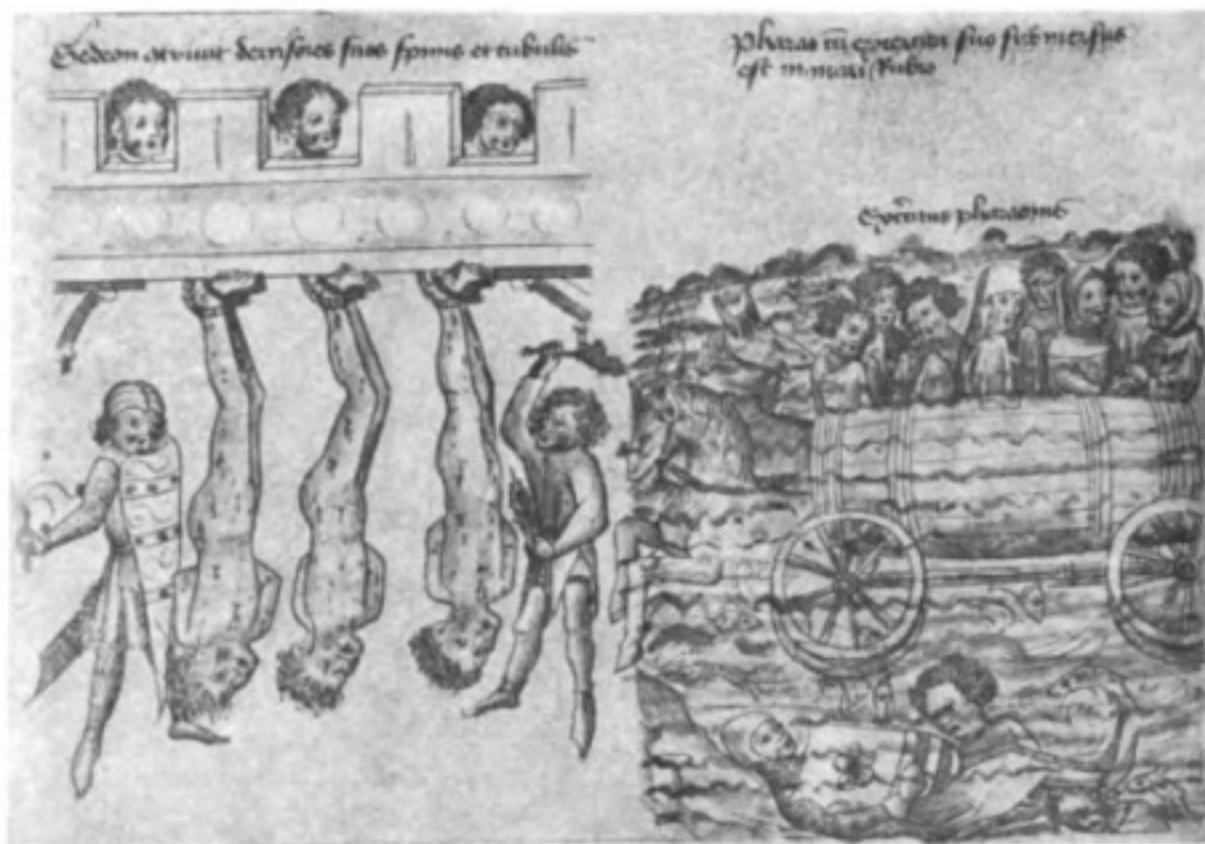 Gedeon derisores suos spinis et tribulis
Pharao cū exercitu suo submersus
est in mari Rubro
pharaonis